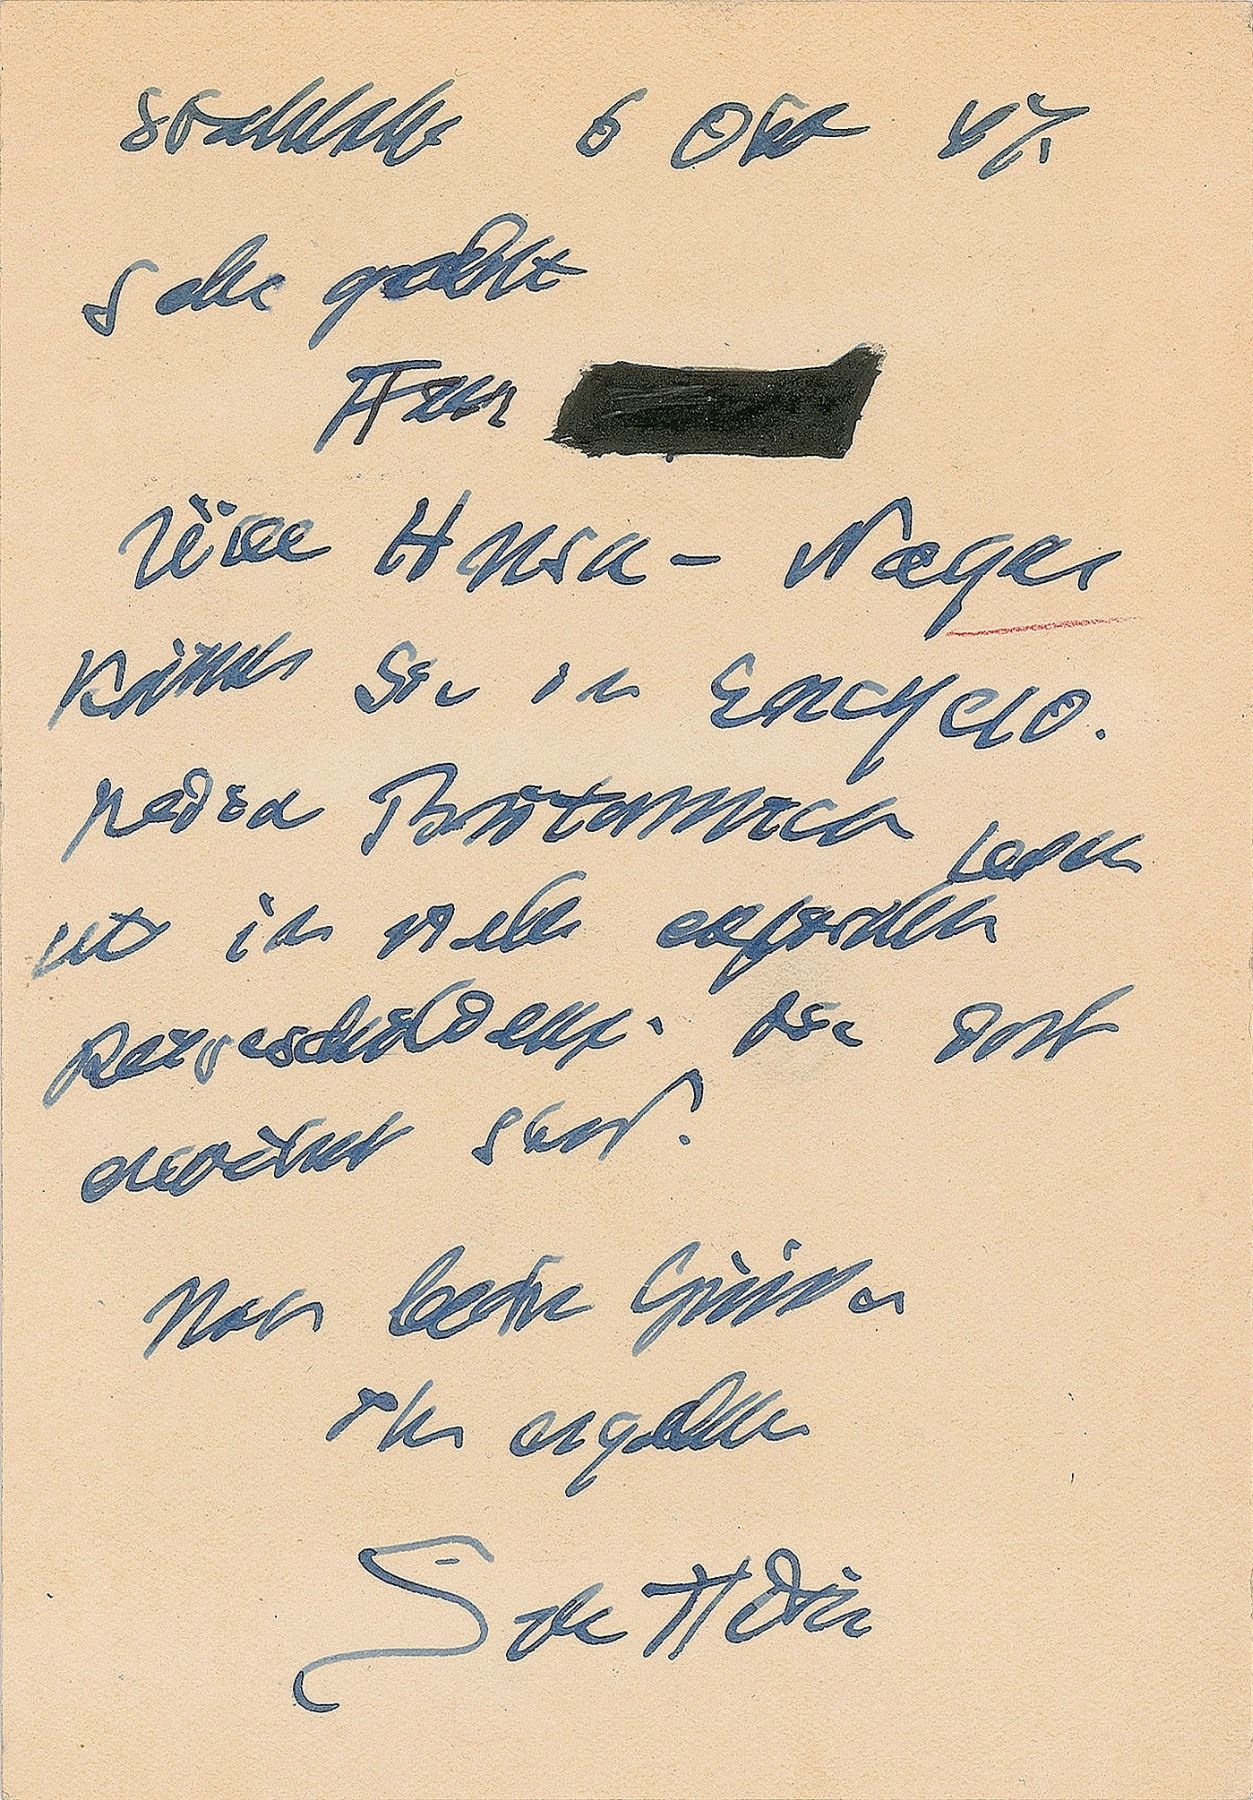 Stockholm 6 Okt 47.
Sehr geehrter
Herr
Über Hausa-Neger
können Sie in Encyclo-
pedia Britannica lesen
und in vielen
Reiseschilderungen, die dort
erwähnt sind.
Mit besten Grüssen
Ihr ergebener
Sven Hedin